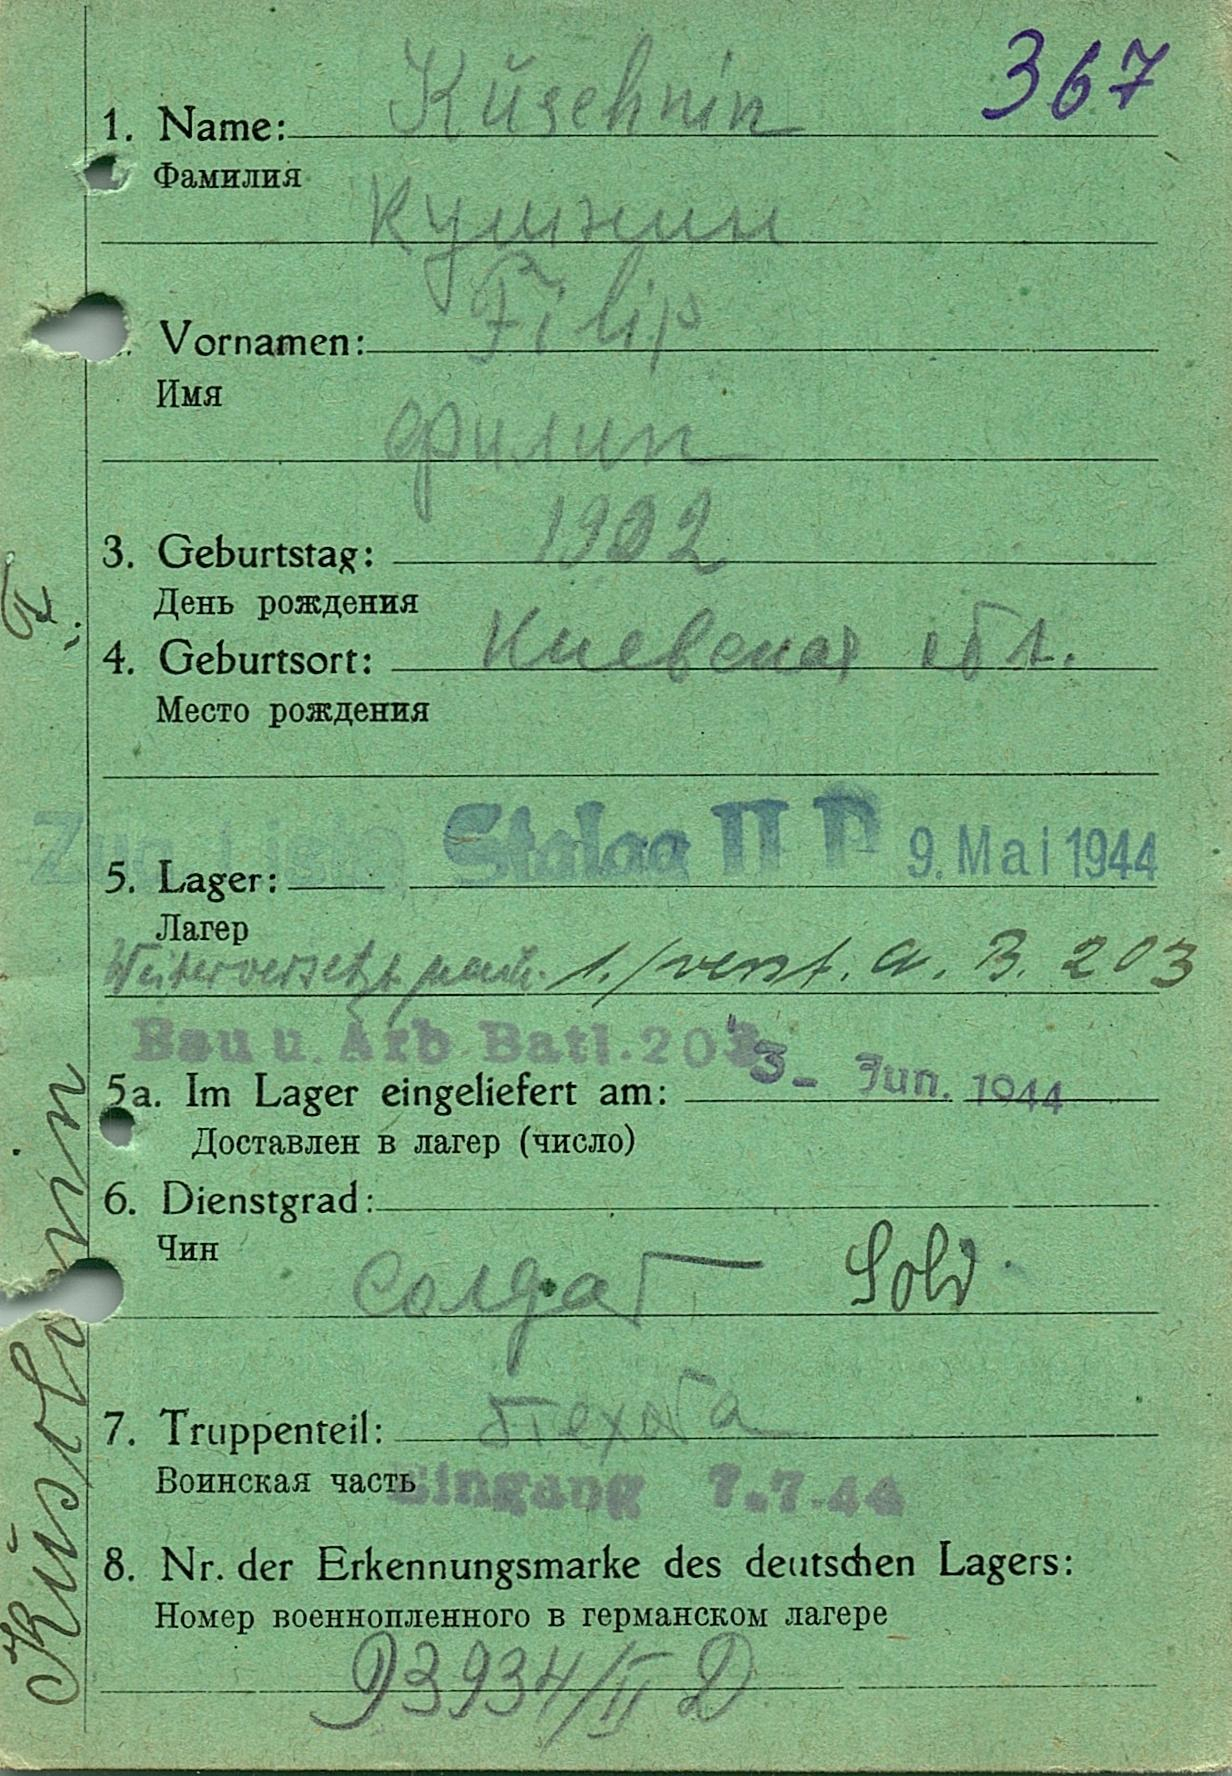 367
1. Name: Kŭschnin
Фамилия
Кушнин
Vornamen: Filip
Имя
Филип
3. Geburtstag: 1902
День рождения
4. Geburtsort: Киевская обл.
Место рождения
Zug. Liste Stalag II D 9. Mai 1944
5. Lager:
Лагер
Weiterversetzt nach 1./ a. B. 203
Bau u. Arb Batl. 203
5a. Im Lager eingeliefert am: 3- Jun. 1944
Доставлен в лагер (число)
6. Dienstgrad:
Чин
солдат Sold.
7. Truppenteil: пехота
Воинская часть
Eingang 7.7.44
8. Nr. der Erkennungsmarke des deutschen Lagers:
Номер военнопленного в германском лагере
93934/II D
Kŭschnin, F.